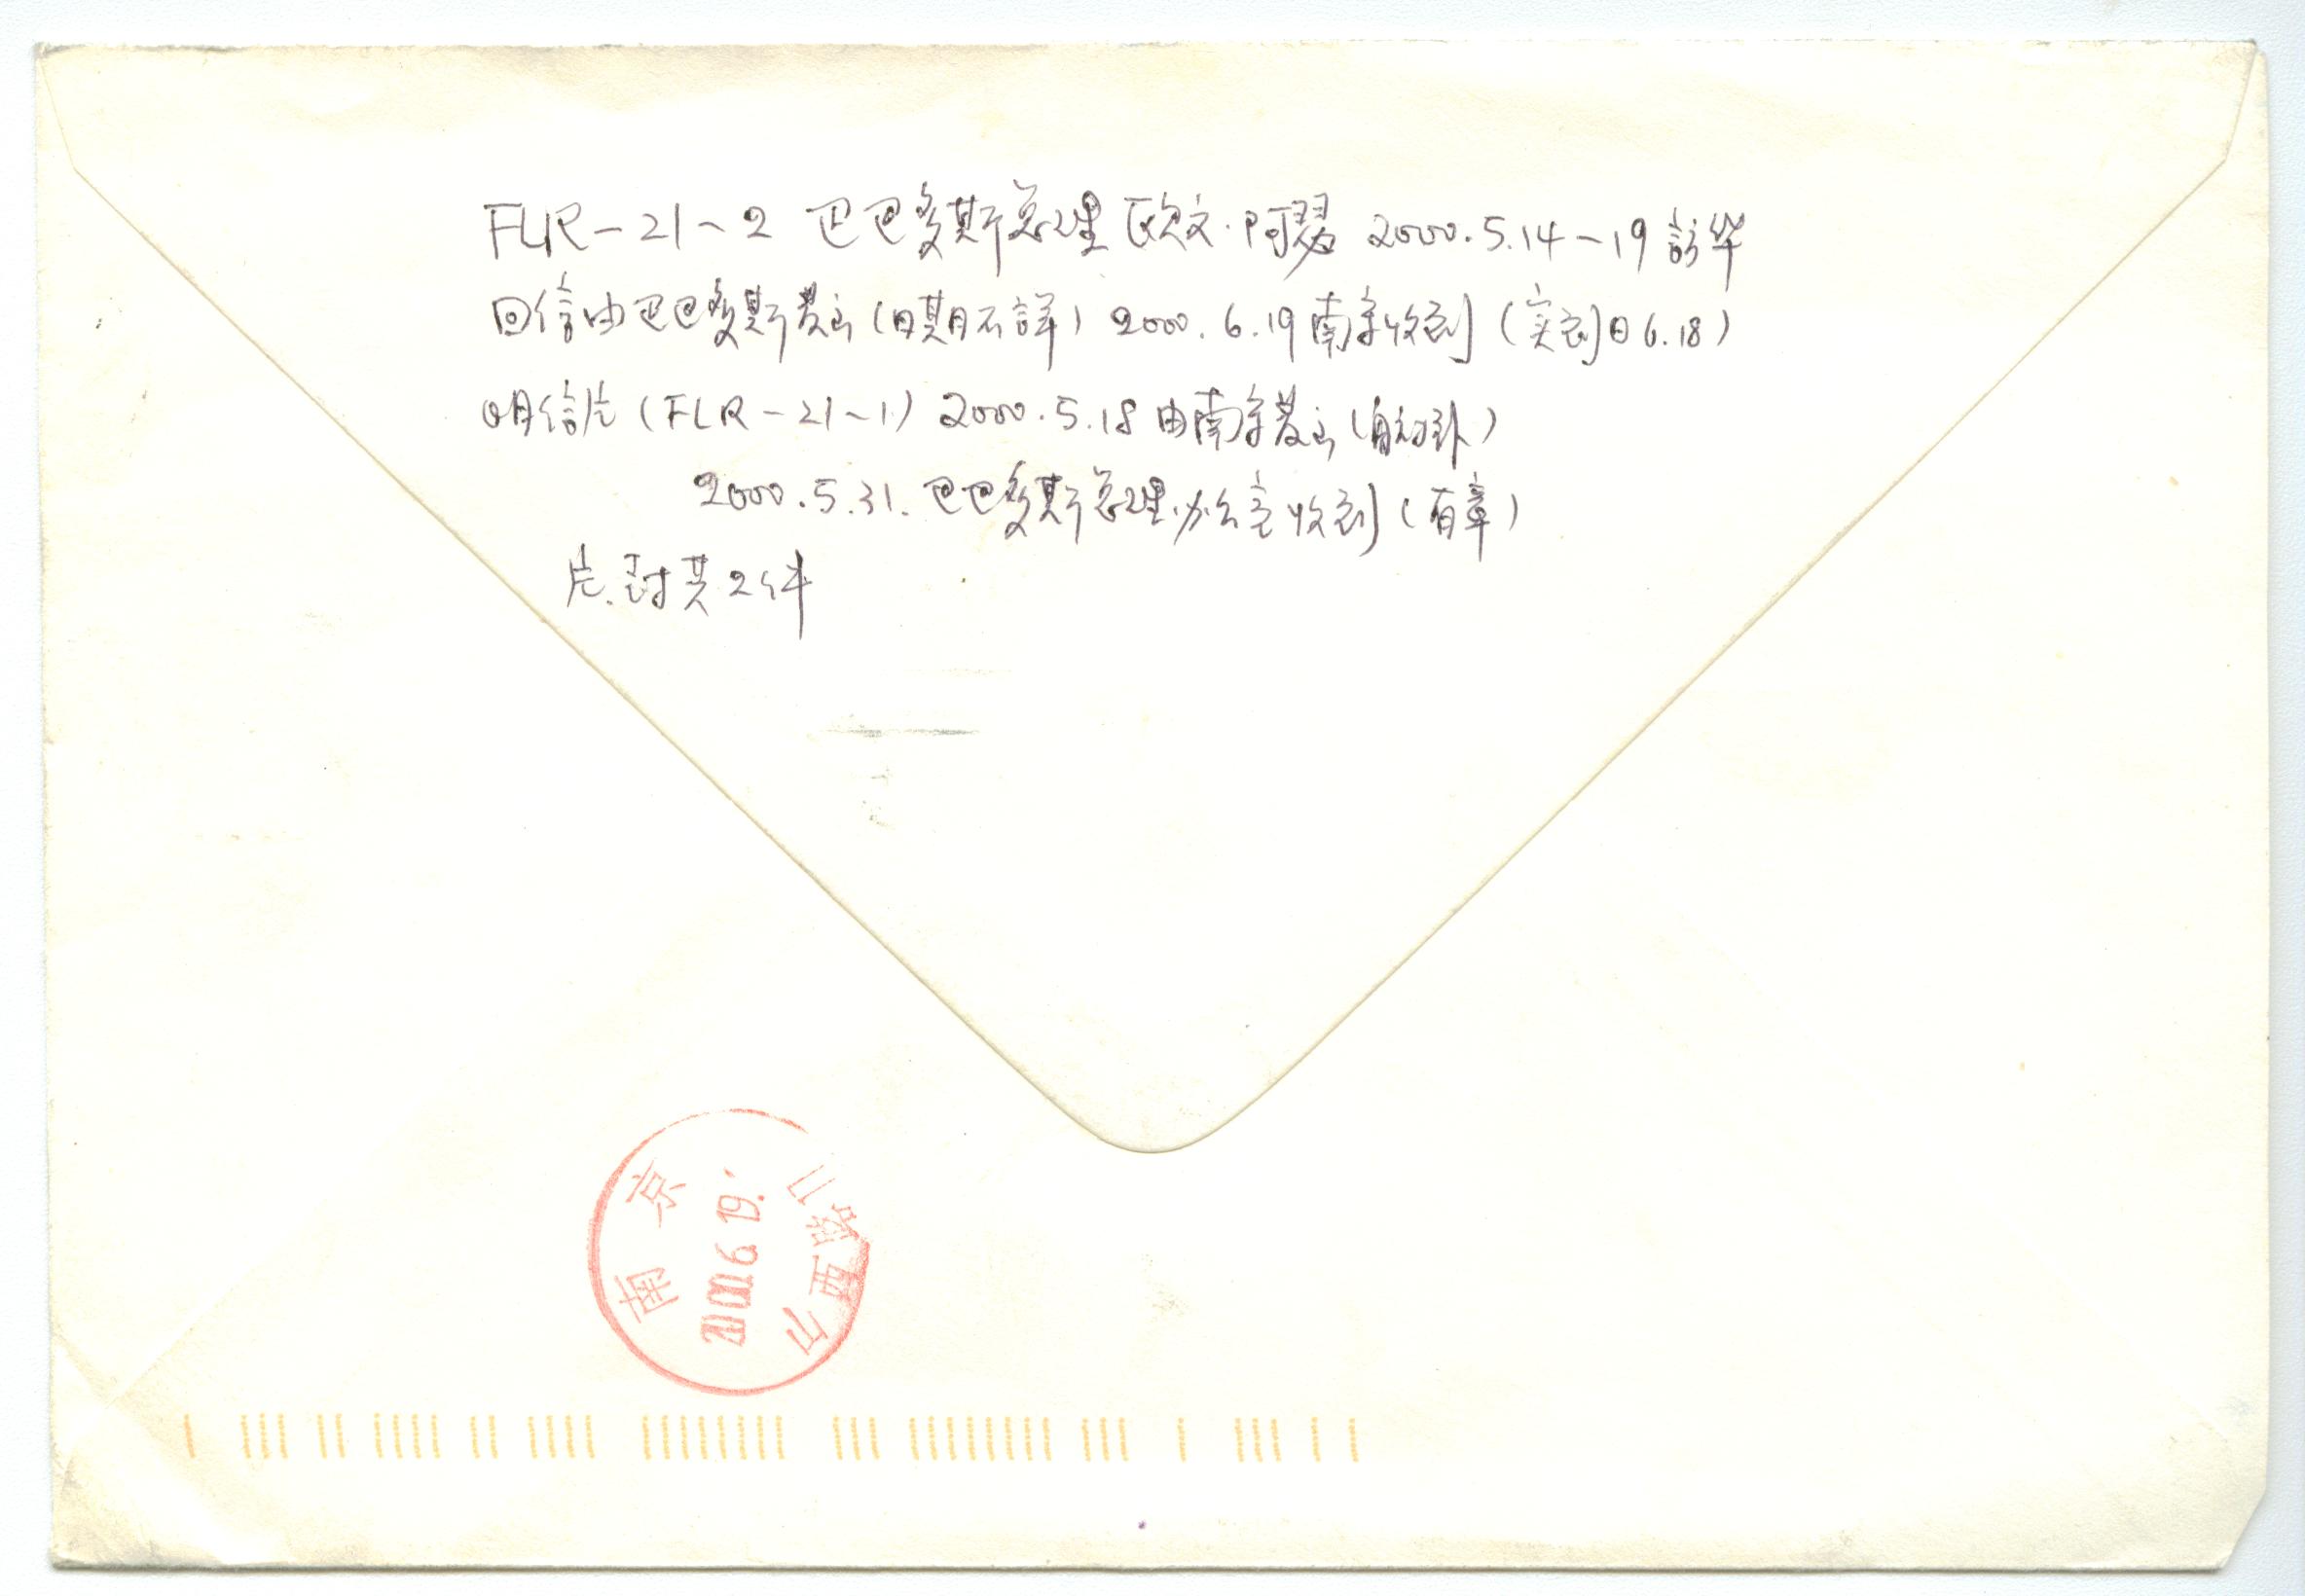 FLR-21-2 巴巴多斯总理 欧文·阿瑟 2000.5.14-19 訪华
回信由巴巴多斯发出(日期不詳) 2000.6.19南京收到(实到日6.18)
明信片(FLR-21-1) 2000.5.18由南京发出(航挂)
2000.5.31.巴巴多斯总理办公室收到(有章)
片.封共2件
南京
2000.6.19.
山西路